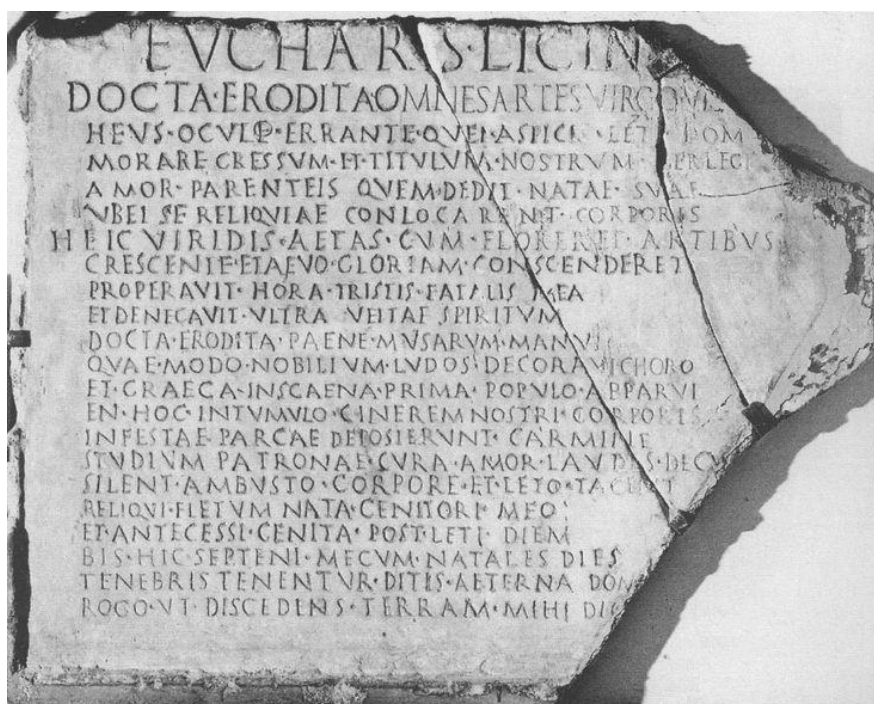 EVCHARIS·LICIN
DOCTA·ERODITA·OMNES ARTES VIRGO·VI
HEVS·OCVLO·ERRANTE·QVEI·ASPICIS·LETI DOM
MORARE GRESSVM·ET·TITVLVM·NOSTRVM PERLEGE
AMOR·PARENTEIS QVEM·DEDIT·NATAE·SVAE
VBEI SE RELIQVIAE CONLOCARENT·CORPORIS
HEIC VIRIDIS·AETAS·CVM·FLORERET·ARTIBVS
CRESCENTE·ET AEVO·GLORIAM·CONSCENDERET
PROPERAVIT·HORA·TRISTIS·FATALIS MEA
ET DENEGAVIT·VLTRA VEITAE SPIRITVM
DOCTA·ERODITA·PAENE·MVSARVM·MANV
QVAE·MODO·NOBILIVM·LVDOS·DECORAVI CHORO
ET·GRAECA·IN SCAENA·PRIMA·POPVLO·APPARVI
EN·HOC·IN TVMVLO·CINEREM NOSTRI·CORPORIS
INFESTAE·PARCAE DEPOSIERVNT·CARMINE
STVDIVM PATRONAE CVRA·AMOR·LAVDES·DECVS
SILENT·AMBVSTO·CORPORE·ET·LETO·TACENT
RELIQVI·FLETVM NATA·GENITORI MEO
ET·ANTECESSI·GENITA·POST·LETI DIEM
BIS·HIC·SEPTENI·MECVM·NATALES DIES
TENEBRIS TENENTVR·DITIS·AETERNA DOM
ROGO·VT DISCEDENS·TERRAM·MIHI DIC